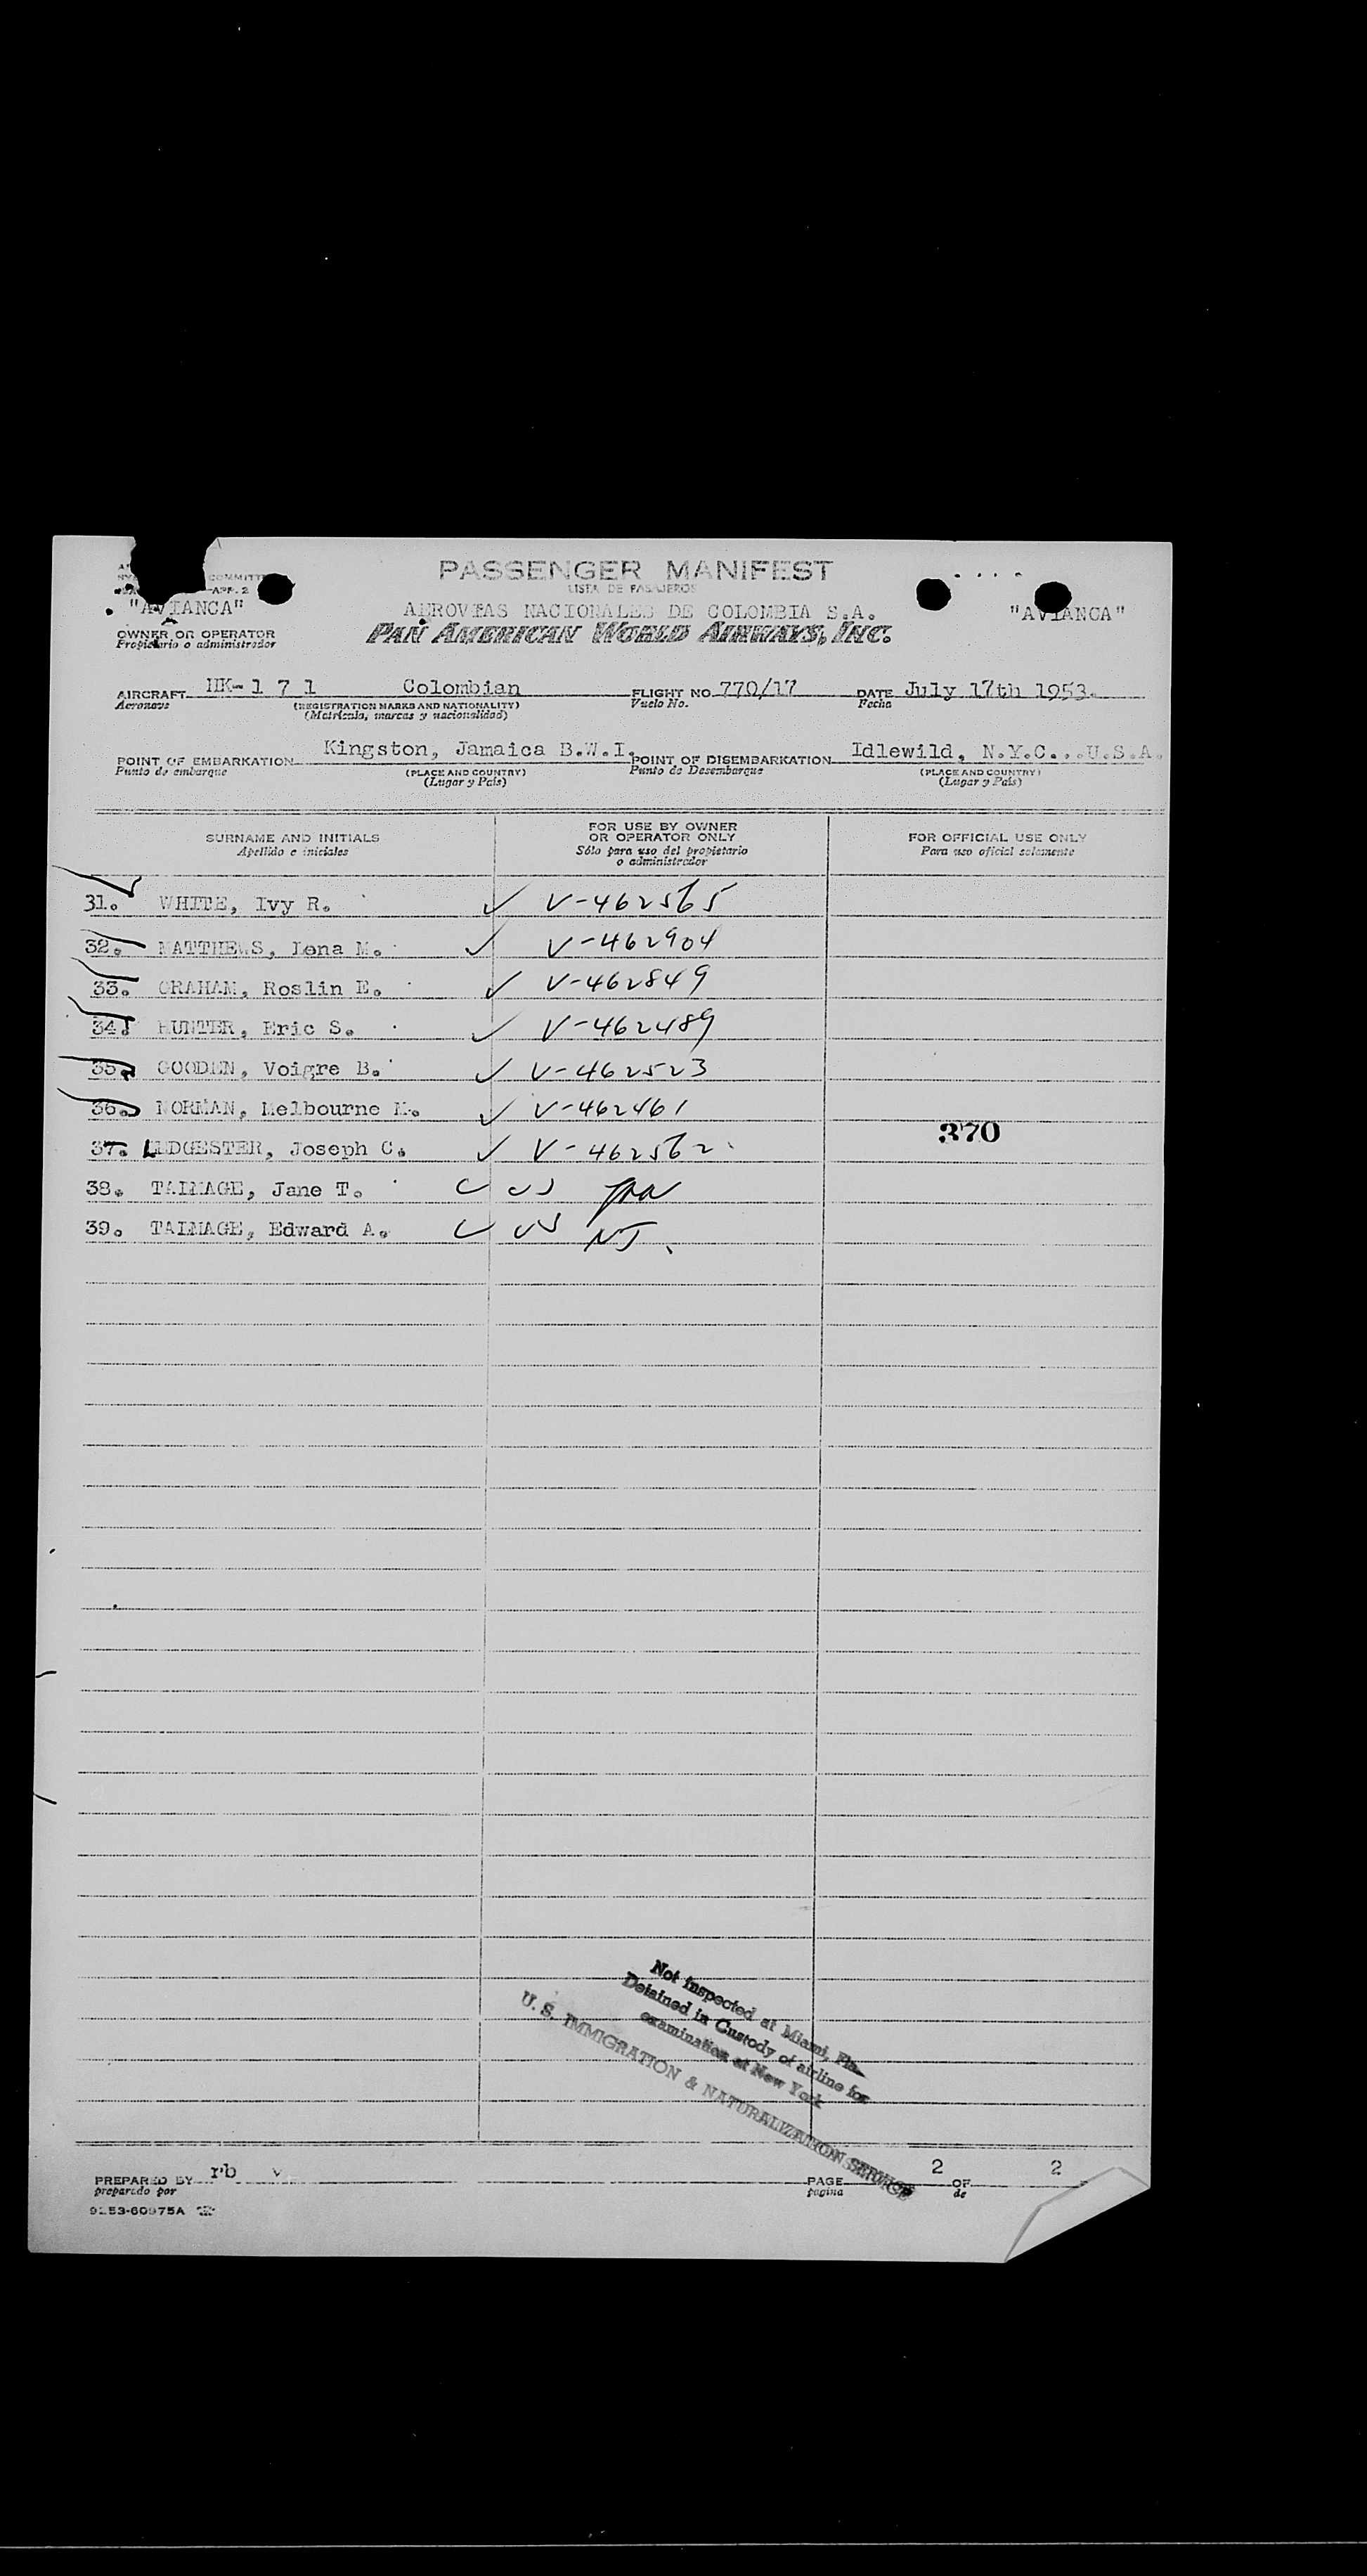 COMMITT
APP. 2
PASSENGER MANIFEST
LISTA DE PASAJEROS
"AVIANCA" AEROVIAS NACIONALES DE COLOMBIA S.A. "AVIANCA"
PAN AMERICAN WORLD AIRWAYS, INC.
OWNER OR OPERATOR
Propietario o administrador
AIRCRAFT HK-1 7 1 Colombian FLIGHT NO. 770/17 DATE July 17th 1953.
Aeronave (REGISTRATION MARKS AND NATIONALITY) Vuelo No. Fecha
(Matrícula, marcas y nacionalidad)
POINT OF EMBARKATION Kingston, Jamaica B.W.I. POINT OF DISEMBARKATION Idlewild, N.Y.C...U.S.A.
Punto de embarque (PLACE AND COUNTRY) Punto de Desembarque (PLACE AND COUNTRY)
(Lugar y País) (Lugar y País)
SURNAME AND INITIALS
Apellido e iniciales
FOR USE BY OWNER
OR OPERATOR ONLY
Sólo para uso del propietario
o administrador
FOR OFFICIAL USE ONLY
Para uso oficial solamente
31. WHITE, Ivy R. ✓ V-462565
32. MATTHEWS, Lena M. ✓ V-462904
33. GRAHAM, Roslin E. ✓ V-462849
34. HUNTER, Eric S. ✓ V-462489
35. GOODEN, Voigre B. ✓ V-462523
36. NORMAN, Melbourne M. ✓ V-462461
370
37. LEDGESTER, Joseph C. ✓ V-462562
38. TALMAGE, Jane T. US
39. TALMAGE, Edward A. US NJ
Not inspected at Miami, Fla.
Detained in Custody of airline for
examination at New York
U. S. IMMIGRATION & NATURALIZATION SERVICE
PREPARED BY rb PAGE 2 OF 2
preparado por pagina de
9153-60975A